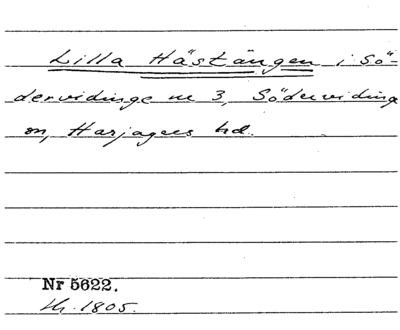 Lilla Hästängen i Sö-
dervidinge nr 3, Södervidinge
sn, Harjagers hd.
Nr 5622.
1805.